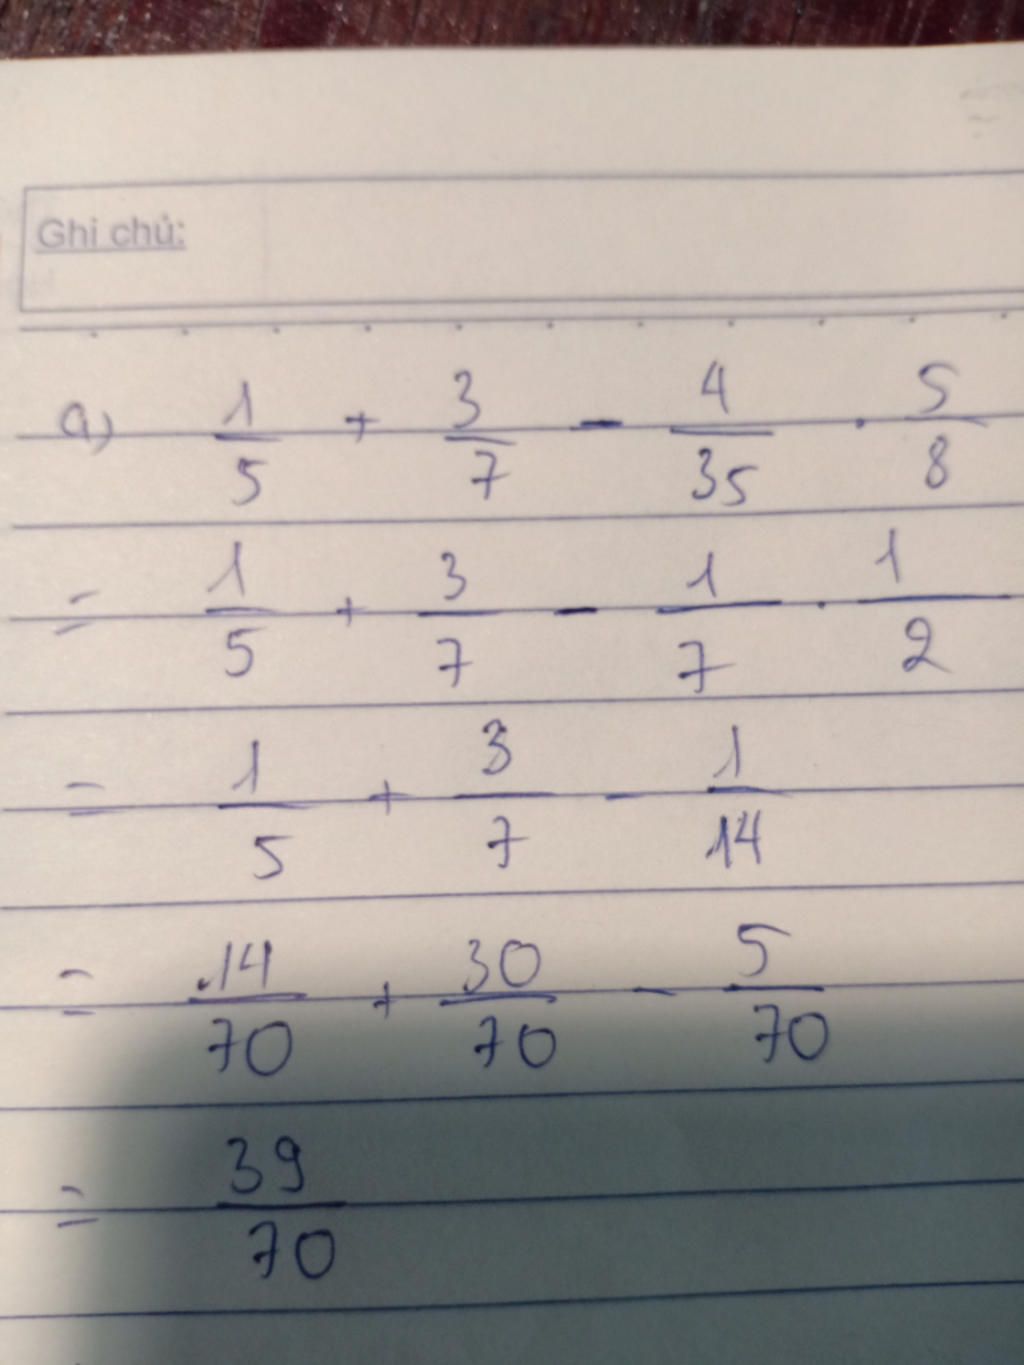 Ghi chú:
a) 1/5 + 3/7 - 4/35 . 5/8
= 1/5 + 3/7 - 1/7 . 1/2
= 1/5 + 3/7 - 1/14
= 14/70 + 30/70 - 5/70
= 39/70